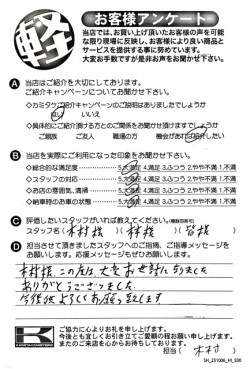 軽
お客様アンケート
当店では、お買い上げ頂いたお客様の声を可能
な限り現場に反映し、お客様により良い商品と
サービスを提供する事に努めています。
大変お手数ですが是非お声をお聞かせ下さい。
A 当店はご紹介を大切にしております。
ご紹介キャンペーンについてお聞かせ下さい。
◇カミタケご紹介キャンペーンのご説明はありましたでしょうか
はい いいえ
◇具体的にご紹介頂ける方とのご関係をお聞かせ頂けますでしょうか
ご親族 ご友人 職場の方 機会があれば紹介したい
B 当店を実際にご利用になった印象をお聞かせ下さい。
◇総合的な満足度 5.大満足 4.満足 3.ふつう 2.やや不満 1.不満
◇スタッフの対応 5.大満足 4.満足 3.ふつう 2.やや不満 1.不満
◇お店の雰囲気、清掃 5.大満足 4.満足 3.ふつう 2.やや不満 1.不満
◇納車時のお車の状態 5.大満足 4.満足 3.ふつう 2.やや不満 1.不満
C 評価したいスタッフがいれば教えてください。(複数回答可)
スタッフ名 (木村様) (林様) (皆様)
D 担当させて頂きましたスタッフへのご指摘、ご指導メッセージを
お願いします。応援メッセージもぜひお願いします。
木村様、この度は大変お世話になりました
ありがとうございました。
今後共よろしくお願い致します
ご協力に心よりお礼を申し上げます。
今後とも宜しくお引き立てご愛顧の程お願い申し上げます。
またのご来店を心からお待ちしております。
担当 (木村)